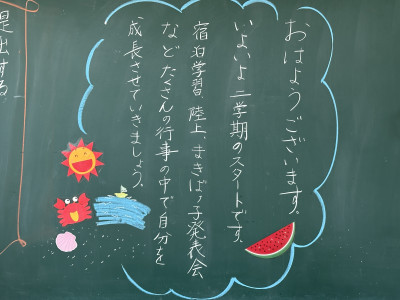 おはようございます。
いよいよ二学期のスタートです。
宿泊学習、陸上、まきばっ子発表会
などたくさんの行事の中で自分を
成長させていきましょう。
提出する